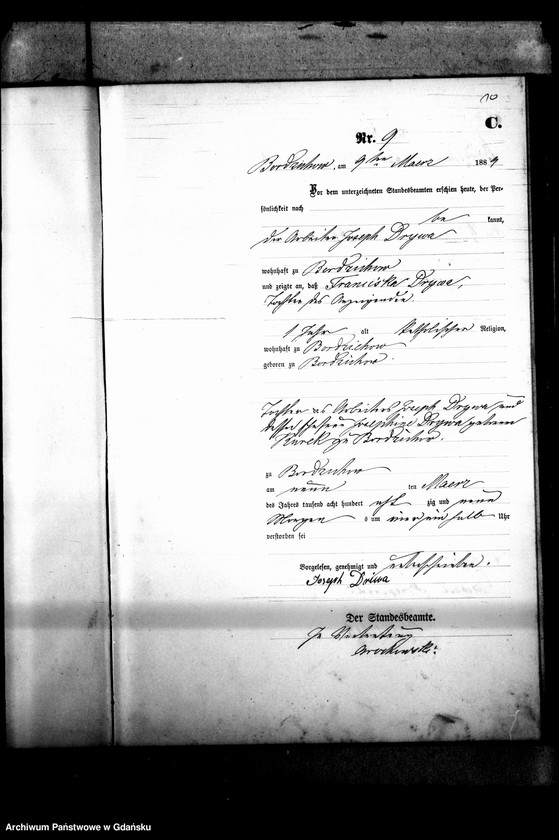 10
C.
Nr. 9
Bordzichow, am 9ten Maerz 1889
Vor dem unterzeichneten Standesbeamten erschien heute, der Per-
sönlichkeit nach
be kannt,
der Arbeiter Joseph Drywa
wohnhaft zu Bordzichow
und zeigte an, daß Franciska Drywa,
Tochter des Anzeigenden
1 Jahr alt katholischer Religion,
wohnhaft zu Bordzichow
geboren zu Bordzichow.
Tochter des Arbeiters Joseph Drywa und
dessen Ehefrau Josephine Drywa geborene
Kurek zu Bordzichow.
zu Bordzichow
am neun ten Maerz
des Jahres tausend acht hundert acht zig und neun
Morgens um vier ein halb Uhr
verstorben sei
Vorgelesen, genehmigt und unterschrieben.
Joseph Driwa
Der Standesbeamte.
In Vertretung
Archiwum Państwowe w Gdańsku